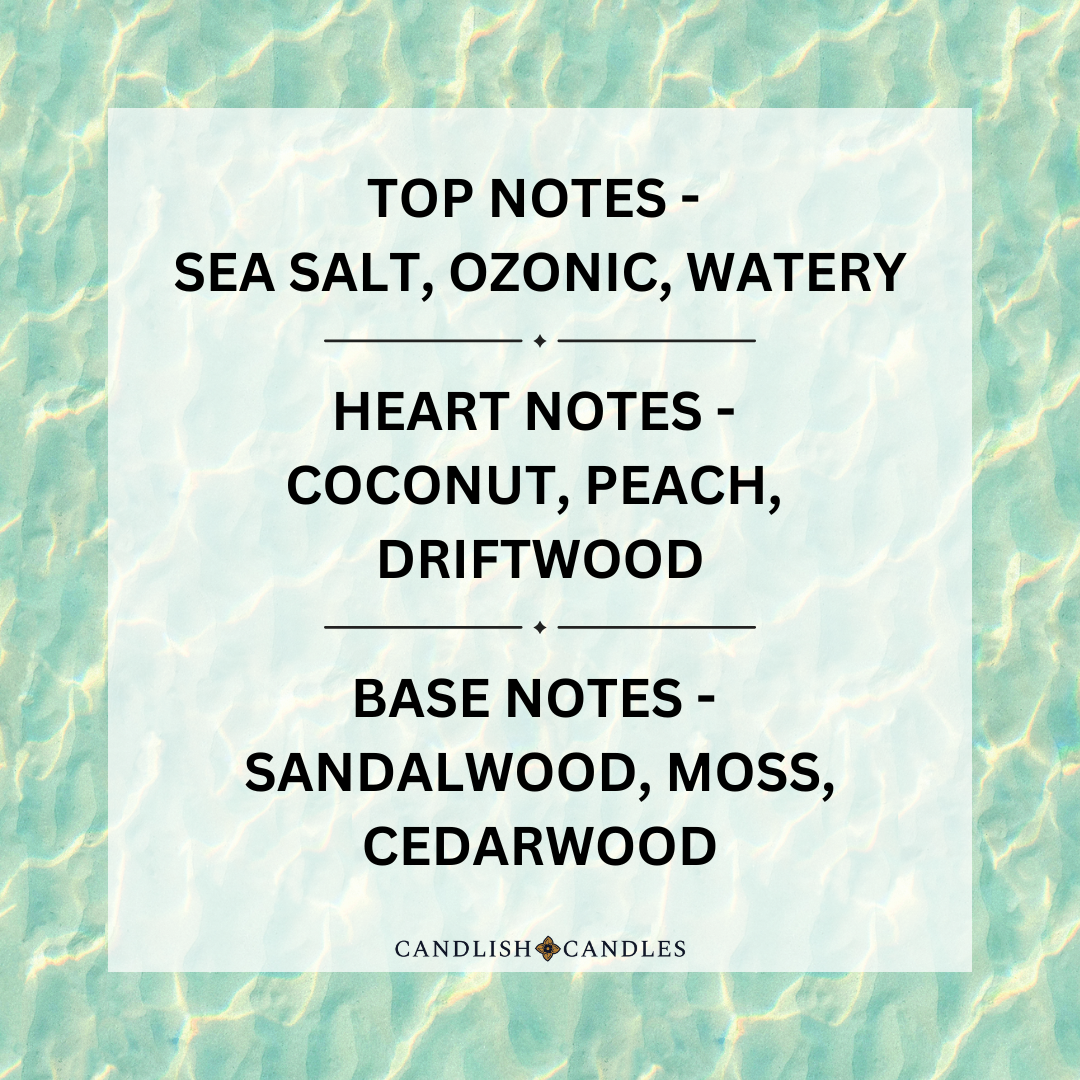 TOP NOTES -
SEA SALT, OZONIC, WATERY
HEART NOTES -
COCONUT, PEACH,
DRIFTWOOD
BASE NOTES -
SANDALWOOD, MOSS,
CEDARWOOD
CANDLISH CANDLES